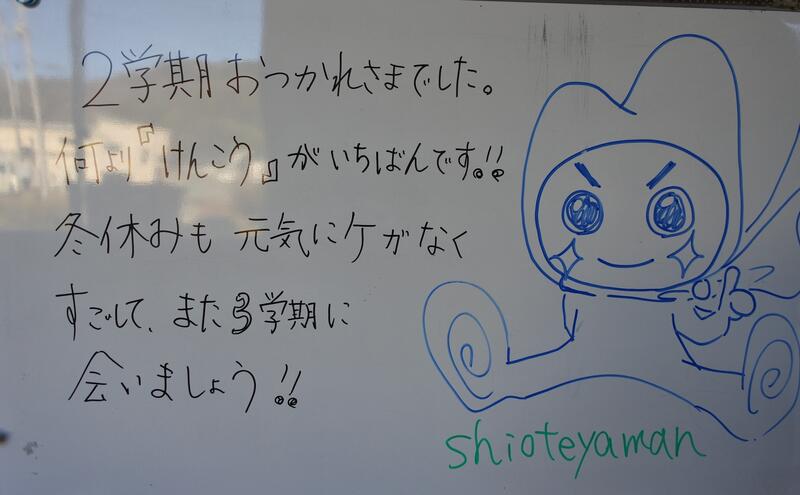 2学期おつかれさまでした。
何より『けんこう』がいちばんです!!
冬休みも元気にケガなく
すごして、また3学期に
会いましょう!!
shioteyaman